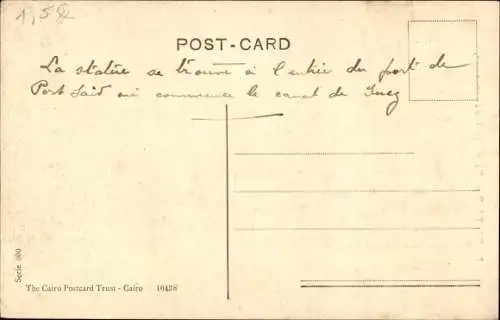 1,5
POST-CARD
La statue se trouve à l'entrée du port de
Port Said où commence le canal de Suez
Serie 060
The Cairo Postcard Trust - Cairo 16428